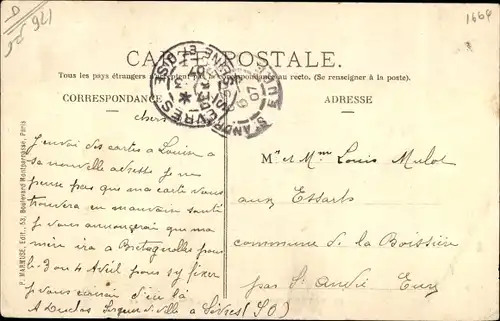 1664
CARTE POSTALE.
Tous les pays étrangers n'acceptent pas la correspondance au recto. (Se renseigner à la poste).
CORRESPONDANCE
ADRESSE
chers
J'envoi des cartes a Louise a
sa nouvelle adresse je ne
pense pas que ma carte vous
trouvera en mauvaise santé
je vous annoncerai que ma
mère ira a Bretagnolles pour
le 3 ou 4 Avril pour s'y fixer
je vous écrirai d'ici là
A Duclos Sergeur de ville a Sèvres (SO)
Mr et Mme Louis Mulot
aux Essarts
commune de la Boissière
par St André Eure
P. MARMUSE, Edit., 53, Boulevard Montparnasse, Paris
SÈVRES
SEINE ET OISE
ST ANDRÉ
EURE
07